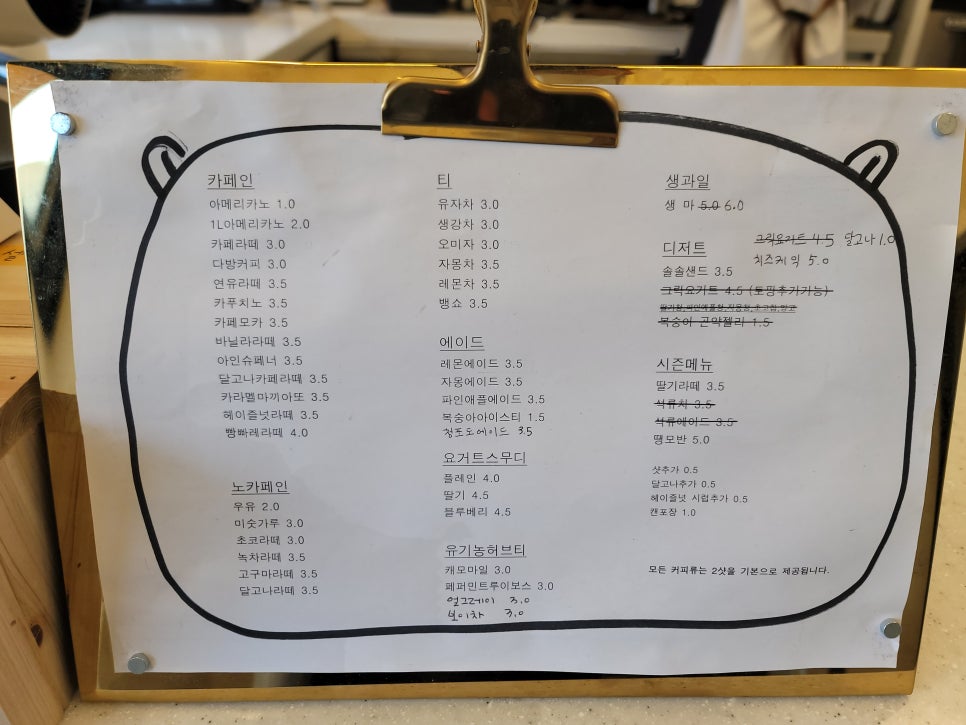 카페인
아메리카노 1.0
1L아메리카노 2.0
카페라떼 3.0
다방커피 3.0
연유라떼 3.5
카푸치노 3.5
카페모카 3.5
바닐라라떼 3.5
아인슈페너 3.5
달고나카페라떼 3.5
카라멜마끼아또 3.5
헤이즐넛라떼 3.5
빵빠레라떼 4.0
노카페인
우유 2.0
미숫가루 3.0
초코라떼 3.0
녹차라떼 3.5
고구마라떼 3.5
달고나라떼 3.5
티
유자차 3.0
생강차 3.0
오미자 3.0
자몽차 3.5
레몬차 3.5
뱅쇼 3.5
에이드
레몬에이드 3.5
자몽에이드 3.5
파인애플에이드 3.5
복숭아아이스티 1.5
청포도에이드 3.5
요거트스무디
플레인 4.0
딸기 4.5
블루베리 4.5
유기농허브티
캐모마일 3.0
페퍼민트루이보스 3.0
얼그레이 3.0
보이차 3.0
생과일
생 마 5.0 6.0
디저트
그릭요거트 4.5 달고나 1.0
치즈케익 5.0
솔솔샌드 3.5
그릭요기트 4.5 (토핑추가가능)
복숭아 곤약젤리 1.5
시즌메뉴
딸기라떼 3.5
석류차 3.5
석류에이드 3.5
땡모반 5.0
샷추가 0.5
달고나추가 0.5
헤이즐넛 시럽추가 0.5
캔포장 1.0
모든 커피류는 2샷을 기본으로 제공됩니다.